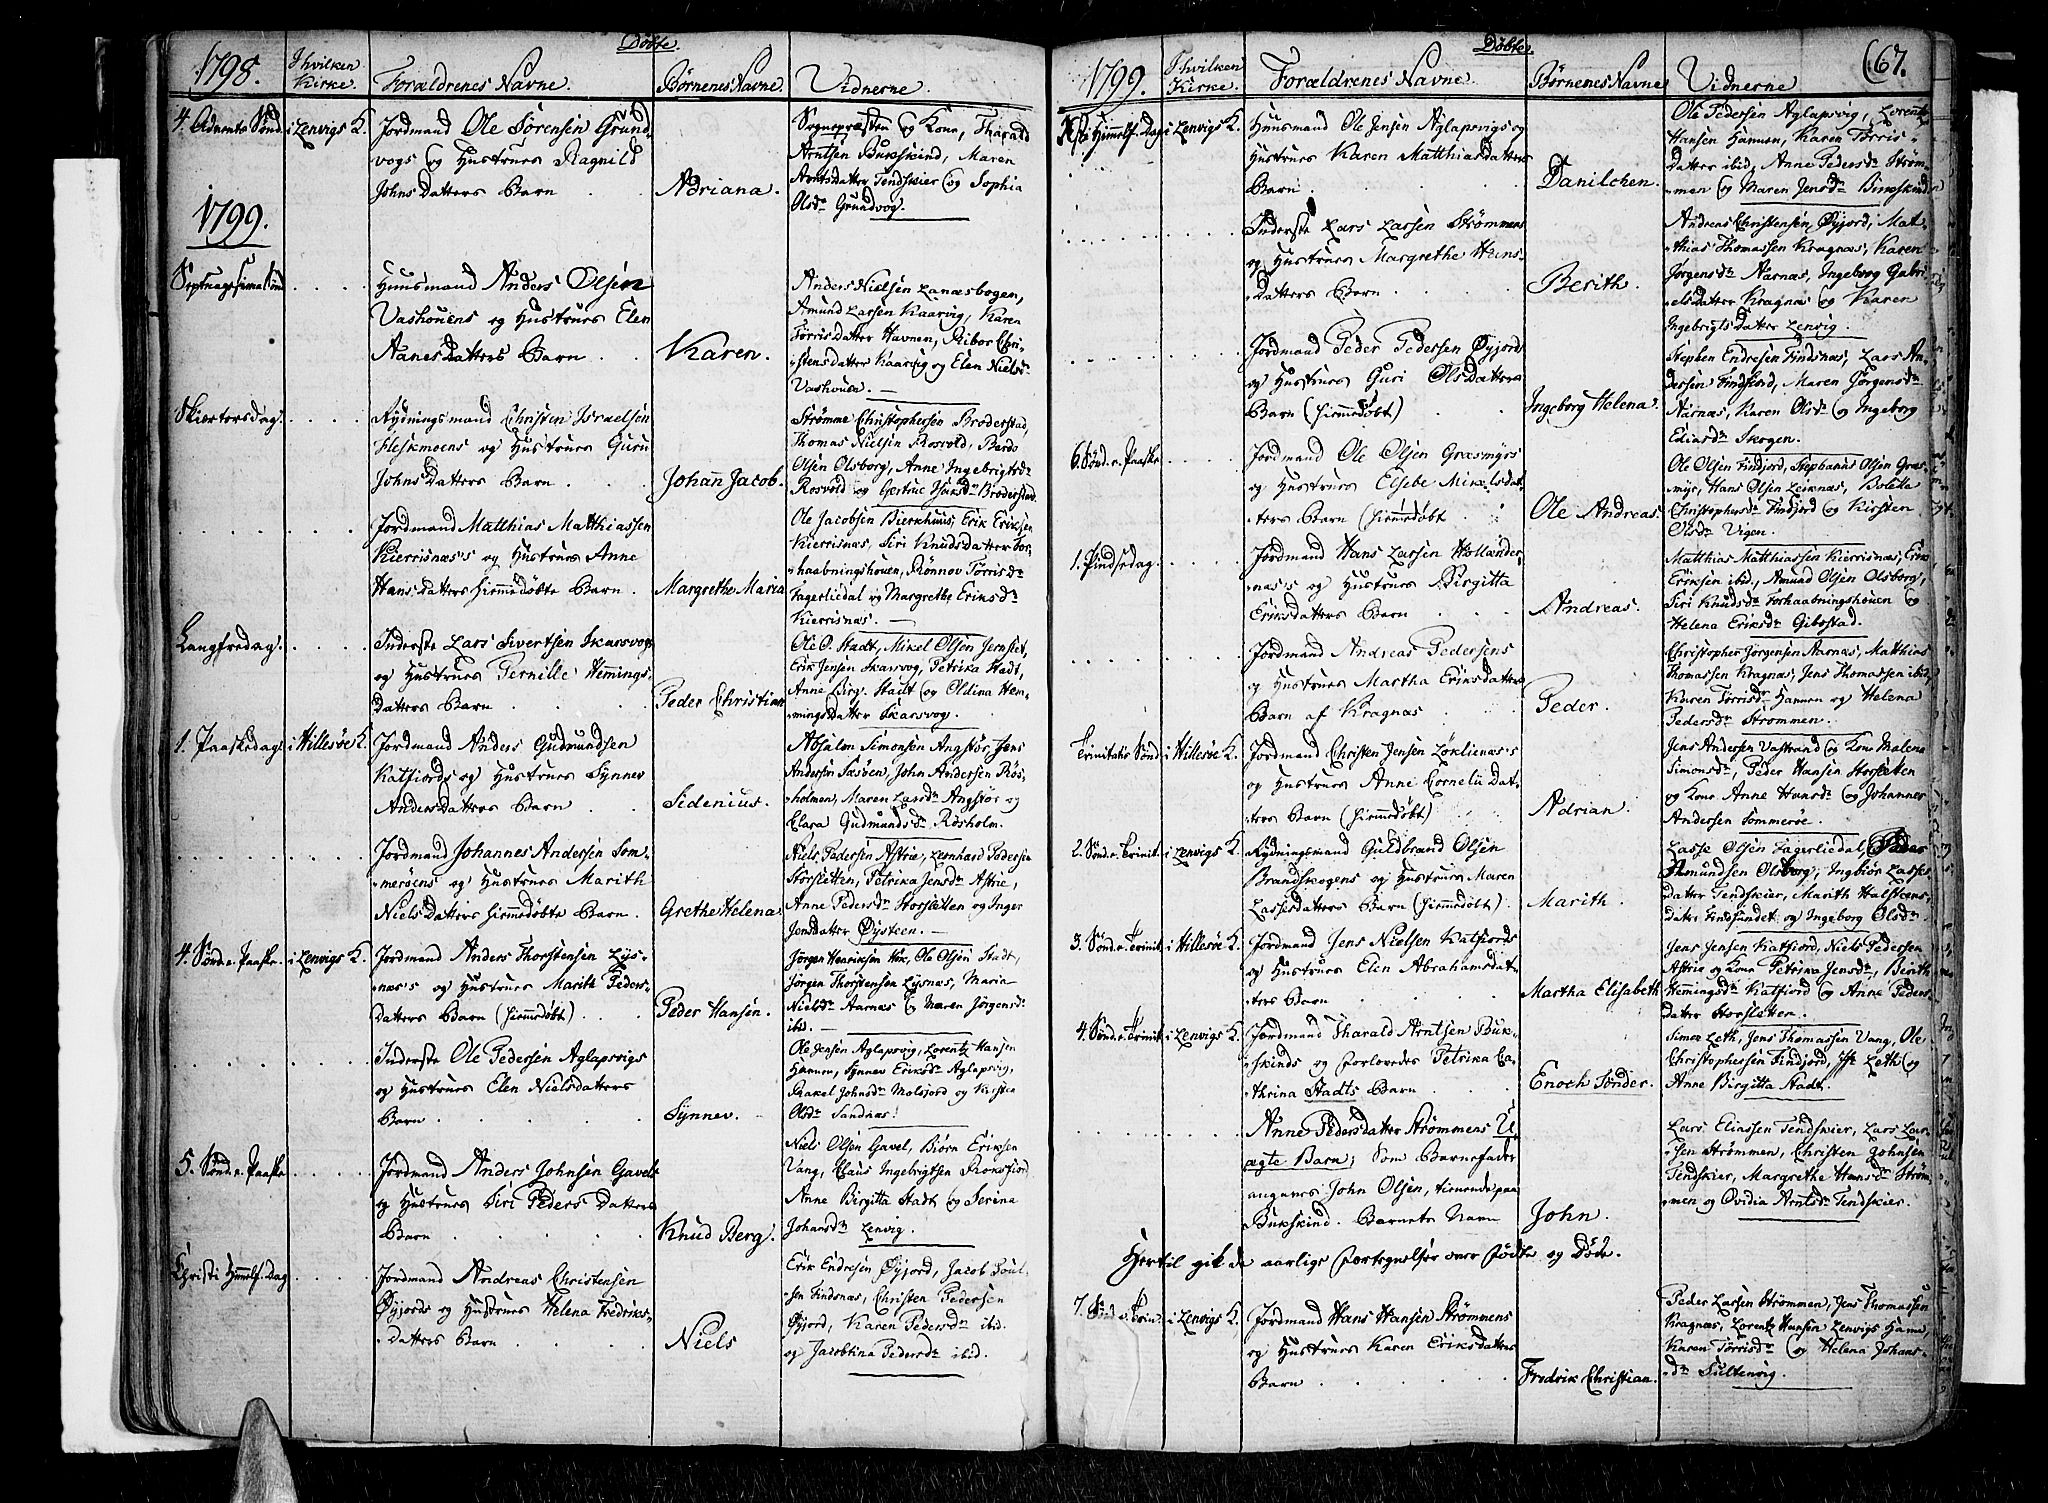 Döbte.
1798.
I hvilken Kirke.
Forældrenes Navne.
Börnenes Navne.
Vidnerne.
4. Advents Sönd.
i Lenvigs K.
Jordmand Ole Sörensen Grund-
vogs og Hustrues Ragnild
Johns Datters Barn
Adriana.
Sognepræsten og Kone, Tharald
Arntsen Bukskind, Maren
Arntsdatter Tendskier og Sophia
Olsdr Grundvog.
1799.
Septuagesima Sönd
Huusmand Anders Olsen
Vashouens og Hustrues Elen
Aanes Datters Barn
Karen.
Anders Nielsen Lanæsbogen,
Amund Larsen Kaarvig, Karen
Törrisdatter Havnen, Ribor Chri-
stensdatter Kaarvig og Elen Nielsdr
Vashouen.
Skiertorsdag.
Rydningsmand Christen Israelsen
Heskmoens og Hustrues Guru
Johns Datters Barn
Johan Jacob.
Strömme Christophersen Broderstad,
Thomas Nielsen Rosvold, Bardo
Olsen Olsborg, Anne Ingebrigtsdr
Rosvold og Broderstad.
Jordmand Matthias Matthiassen
Kierrisnæs's og Hustrues Anne
Hans Datters hiemmedöbte Barn.
Margrethe Maria
Ole Jacobsen Bierkhuus, Erik Eriksen
Kierrisnæs, Siri Knudsdatter For-
haabningshouen, Rönnov Törrisdr
Fagerliedal og Margrethe Eriksdr
Kierrisnæs.
Langfredag.
Inderste Lars Sivertsen Skarsvogs
og Hustrues Pernille Hemings
Datters Barn
Peder Christian
Ole O. Stadt, Mikel Olsen Jernslet,
Erik Jensen Skarsvog, Petrika Stadt,
Anne Birg. Stadt og Oldina Hem-
mingsdatter Skarsvog.
1. Paaskedag.
i Hillesöe K.
Jordmand Anders Gudmundsen
Katfiords og Hustrues Synnev
Anders Datters Barn
Sidenius.
Absalon Simonsen Angstör, Jens
Andersen Sæsöen, John Andersen Rös-
holmen, Maren Larsdr Angstör og
Clara Gudmundsdr Rösholm.
Jordmand Johannes Andersen Som-
meröens og Hustrues Marith
Niels Datters hiemmedöbte Barn.
Grethe Helena.
Niels Pedersen Astrie, Leonhard Pedersen
Storsletten, Petrika Jensdr Astrie,
Anne Pedersdr Storsletten og Inger
Jonsdatter Öysteen.
4. Sönd. e. Paaske.
i Lenvigs K.
Jordmand Anders Thorstensen Lys-
næs's og Hustrues Marith Peders-
Datters Barn (hiemmedöbt)
Peder Hansen.
Jörgen Henriksen, Ole Olsen Stadt,
Jörgen Thorstensen Lysnæs, Maria
Nielsdr Aarnæs og Maren Jörgensdr
ibid.
Inderste Ole Pedersen Aglapsvigs
og Hustrues Elen Nielsdatters
Barn
Synnev.
Ole Jensen Aglapsvig, Lorentz Hansen
Hamnen, Synnev Eriksdr Aglapsvig,
Rakel Johnsdr Målsjord og Kirsten
Olsdr Sandnæs.
5. Sönd. e. Paaske
Jordmand Anders Johnsen Gavels
og Hustrues Siri Peders Datters
Barn
Knud Berg.
Niels Olsen Gavel, Biörn Eriksen
Vang, Claus Ingebrigtsen Roksfiord
Anne Birgitta Stadt og Serina
Johansdr Lenvig.
Christi Himmelf. Dag
Jordmand Andreas Christensen
Öyjords og Hustrues Helena Fredriks-
Datters Barn
Niels
Erik Endresen Öyjord, Jacob Poul-
sen Findsnæs, Christen Pedersen
Öyjord, Karen Pedersdr ibid.
og Jacobina Pedersdr ibid.
Döbte.
67.
1799.
I hvilken Kirke.
Forældrenes Navne.
Börnenes Navne
Vidnerne
Chr. Himmelf. Dag
i Lenvigs K.
Huusmand Ole Jensen Aglapsvigs og
Hustrues Karen Matthiasdatters
Barn.
Danilchen.
Ole Pedersen Aglapsvig, Lorentz
Hansen Hamnen, Karen Törris-
Datter ibid, Anne Pedersdr Ström-
men og Maren Jensdr Bukskind
Inderste Lars Larsen Strömmens
og Hustrues Margrethe Hans-
Datters Barn
Berith.
Andreas Christensen Öyjord, Mat-
thias Thomassen Kragnæs, Karen
Jörgensdr Aarnæs, Ingeborg Gabri-
elsdatter Kragnæs og Karen
Ingebrigtsdatter Lenvig.
Jordmand Peder Pedersen Öyjords
og Hustrues Guri Olsdatters
Barn (hiemmedöbt)
Ingeborg Helena.
Stephen Endresen Findsnæs, Lars An-
dersen Findfiord, Maren Jörgensdr
Aarnæs, Karen Olsdr og Ingeborg
Ediasdr Skogen.
6. Sönd. e. Paaske
Jordmand Ole Olsen Græsmyrs
og Hustrues Elsebe Mikelsdat-
ters Barn (hiemmedöbt
Ole Andreas.
Ole Olsen Findjord, Stephanus Olsen Græs-
myr, Hans Olsen Leiknæs, Bolette
Christophersdr Findjord og Kirsten
Olsdr Vigen.
1. Pindsedag.
Jordmand Hans Larsen Hollænder-
næs's og Hustrues Birgitta
Eriksdatters Barn
Andreas.
Matthias Matthiassen Kierrisnæs, Erik
Eriksen ibid., Amund Olsen Olsborg,
Siri Knudsdr Forhaabningshouen og
Helena Eriksdr Gibostad.
Jordmand Andreas Pedersens
og Hustrues Martha Eriksdatters
Barn af Kragnæs
Peder.
Christopher Jörgensen Aarnæs, Matthias
Thomassen Kragnæs, Jens Thomassen ibid,
Karen Törrisdr Hamnen og Helena
Pedersdr Strömmen.
Trinitatis Sönd.
i Hillesöe K.
Jordmand Christen Jensen Löklienæs's
og Hustrues Anne Cornelii Dat-
ters Barn (hiemmedöbt)
Adrian.
Jens Andersen Vastrand og Kone Malena
Simonsdr, Peder Hansen Storsletten
og Kone Anne Hansdr og Johannes
Andersen Sommeröe.
2. Sönd. e. Trinit.
i Lenvigs K.
Rydningsmand Guldbrand Olsen
Brandskogens og Hustrues Maren
Lassesdatters Barn (hiemmedöbt).
Marith.
Lasse Olsen Fagerliedal, Peder
Amundsen Olsborg, Ingbiör Lasse
Datter Tendskier, Marith Halstens
dater Findsundet og Ingeborg Olsdr
3. Sönd. e. Trinit.
i Hillesöe K.
Jordmand Jens Nielsen Katfiords
og Hustrues Elen Abrahamsdat-
ters Barn
Martha Elisabeth
Jens Jensen Katfiord, Niels Pedersen
Astrie og Kone Petrika Jensdr, Berith
Hemmingsdr Katfiord og Anne Peders-
datter Storsletten.
4. Sönd. e. Trinit.
i Lenvigs K.
Jordmand Tharald Arntsen Buk-
skinds og forlovedes Petrika Ca-
thrina Stadts Barn
Enoch Sönder.
Simon Leth, Jens Thomassen Vang, Ole
Christophersen Findjord, Leth og
Anne Birgitta Stadt.
Anne Pedersdatter Strömmens U-
ægte Barn; Som Barnefader
angaves John Olsen, tienende paa
Bukskind. Barnets Navn
John.
Lars Eliassen Tendskier, Lars Lar-
sen Strömmen, Christen Johnsen
Tendskier, Margrethe Hansdr Ström-
men og Ovidia Arntsdr Tendskier.
Hertil gik de aarlige fortegnelser over Födte og Döde.
7. Sönd. e. Trin.
i Lenvigs K.
Jordmand Hans Hansen Strömmens
og Hustrues Karen Eriksdatters
Barn
Fredrik Christian.
Peder Larsen Strömmen, Jens Thomassen
Kragnæs, Lorentz Hansen Lenvigs Hamn,
Karen Törrisdr og Helena Johans-
dr Sultenvig.